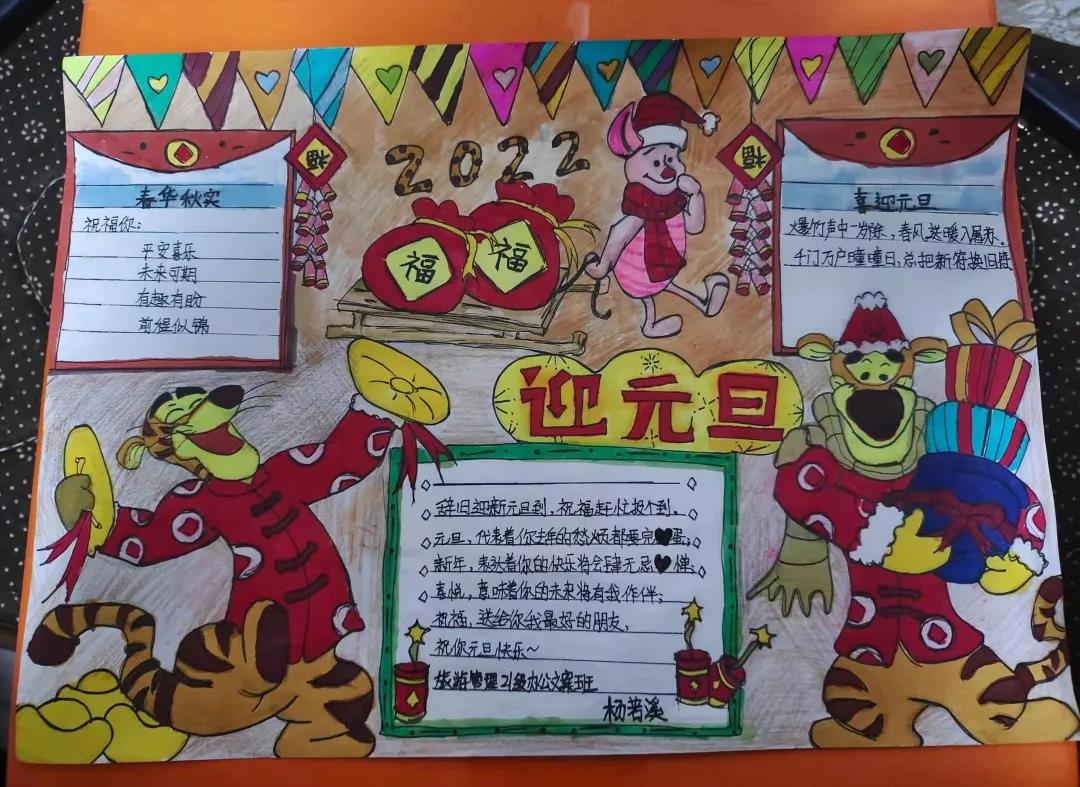 2022
福
福
福
福
春华秋实
祝福你:
平安喜乐
未来可期
有趣有盼
前程似锦
喜迎元旦
爆竹声中一岁除,春风送暖入屠苏.
千门万户曈曈日,总把新符换旧符
迎元旦
辞旧迎新元旦到,祝福赶忙报个到.
元旦,代表着你去年的愁烦都要完♥蛋;
新年,表头着你的快乐将会肆无忌♥惮
喜悦,意味着你的未来将有我作伴;
祝福,送给你我最好的朋友,
祝你元旦快乐~
旅游管理21级办公文案班
杨若溪